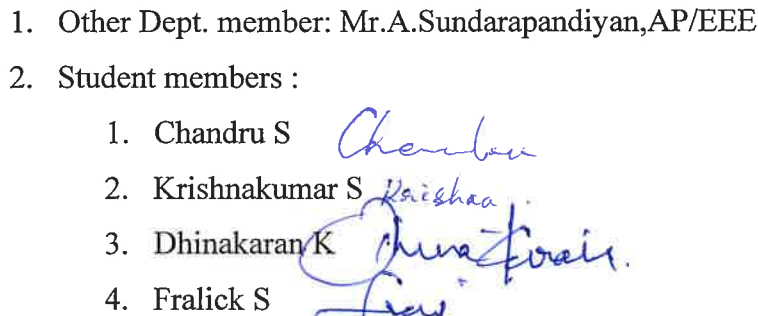 1. Other Dept. member: Mr.A.Sundarapandiyan,AP/EEE
2. Student members :
1. Chandru S Chandru
2. Krishnakumar S Krishna
3. Dhinakaran K Dhinakaran.
4. Fralick S